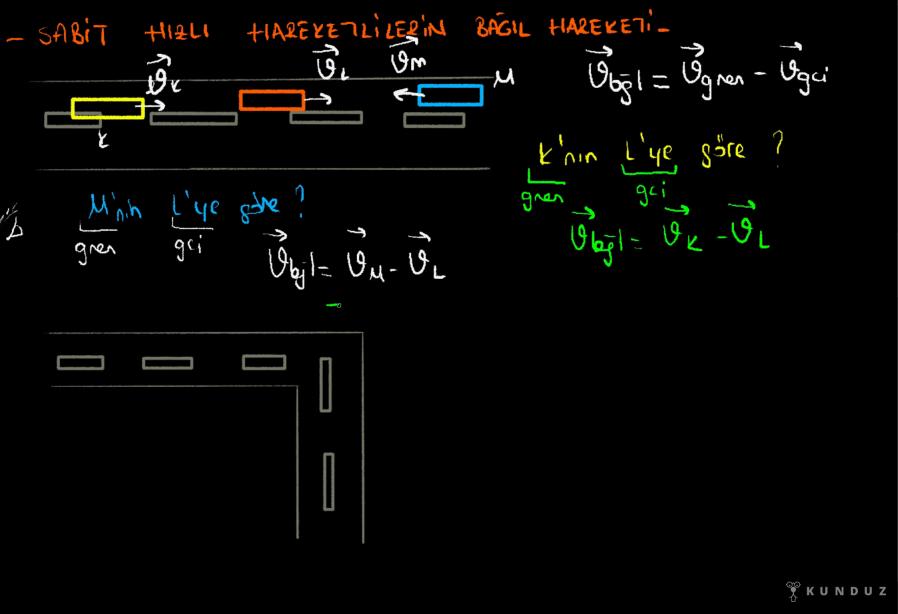 - SABİT HIZLI HAREKETLİLERİN BAĞIL HAREKETİ -
V K V L V M M
K
V bğl = V gren - V gci
K'nın L'ye göre ?
gren gci
V bğl = V K - V L
M'nin L'ye göre ?
gren gci
V bğl = V M - V L
-
KUNDUZ